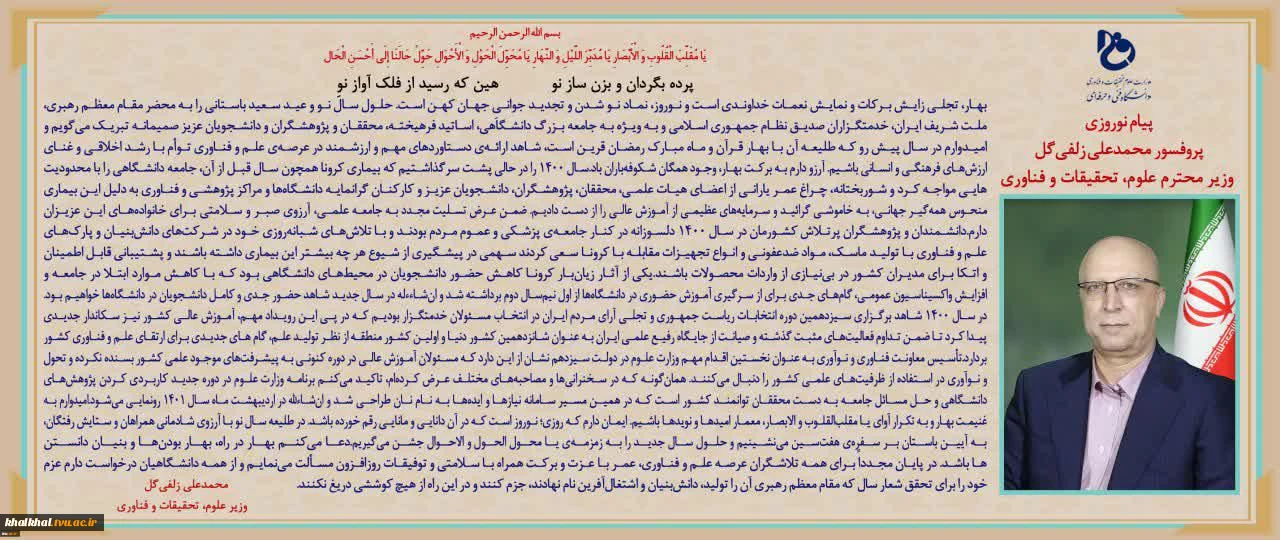 بسم الله الرحمن الرحیم
یَا مُقَلِّبَ الْقُلُوبِ وَ الْأَبْصَارِ یَا مُدَبِّرَ اللَّیْلِ وَ النَّهَارِ یَا مُحَوِّلَ الْحَوْلِ وَ الْأَحْوَالِ حَوِّلْ حَالَنَا إِلَی أَحْسَنِ الْحَالِ
پرده بگردان و بزن ساز نو هین که رسید از فلک آواز نو
بهار، تجلی زایش برکات و نمایش نعمات خداوندی است و نوروز، نماد نو شدن و تجدید جوانی جهان کهن است. حلول سال نو و عید سعید باستانی را به محضر مقام معظم رهبری،
ملت شریف ایران، خدمتگزاران صدیق نظام جمهوری اسلامی و به ویژه به جامعه بزرگ دانشگاهی، اساتید فرهیخته، محققان و پژوهشگران و دانشجویان عزیز صمیمانه تبریک می‌گویم و
امیدوارم در سال پیش رو که طلیعه آن با بهار قرآن و ماه مبارک رمضان قرین است، شاهد ارائه‌ی دستاوردهای مهم و ارزشمند در عرصه‌ی علم و فناوری توأم با رشد اخلاقی و غنای
ارزش‌های فرهنگی و انسانی باشیم. آرزو دارم به برکت بهار، وجود همگان شکوفه‌باران باد.سال ۱۴۰۰ را در حالی پشت سر گذاشتیم که بیماری کرونا همچون سال قبل از آن، جامعه دانشگاهی را با محدودیت
هایی مواجه کرد و شوربختانه، چراغ عمر یارانی از اعضای هیات علمی، محققان، پژوهشگران، دانشجویان عزیز و کارکنان گرانمایه دانشگاه‌ها و مراکز پژوهشی و فناوری به دلیل این بیماری
منحوس همه‌گیر جهانی، به خاموشی گرائید و سرمایه‌های عظیمی از آموزش عالی را از دست دادیم. ضمن عرض تسلیت مجدد به جامعه علمی، آرزوی صبر و سلامتی برای خانواده‌های این عزیزان
دارم.دانشمندان و پژوهشگران پرتلاش کشورمان در سال ۱۴۰۰ دلسوزانه در کنار جامعه‌ی پزشکی و عموم مردم بودند و با تلاش‌های شبانه‌روزی خود در شرکت‌های دانش‌بنیان و پارک‌های
علم و فناوری با تولید ماسک، مواد ضدعفونی و انواع تجهیزات مقابله با کرونا سعی کردند سهمی در پیشگیری از شیوع هر چه بیشتر این بیماری داشته باشند و پشتیبانی قابل اطمینان
و اتکا برای مدیران کشور در بی‌نیازی از واردات محصولات باشند.یکی از آثار زیان‌بار کرونا کاهش حضور دانشجویان در محیط‌های دانشگاهی بود که با کاهش موارد ابتلا در جامعه و
افزایش واکسیناسیون عمومی، گام‌های جدی برای از سرگیری آموزش حضوری در دانشگاه‌ها از اول نیم‌سال دوم برداشته شد و ان‌شاءله در سال جدید شاهد حضور جدی و کامل دانشجویان در دانشگاه‌ها خواهیم بود.
در سال ۱۴۰۰ شاهد برگزاری سیزدهمین دوره انتخابات ریاست جمهوری و تجلی آرای مردم ایران در انتخاب مسئولان خدمتگزار بودیم که در پی این رویداد مهم، آموزش عالی کشور نیز سکاندار جدیدی
پیدا کرد تا ضمن تداوم فعالیت‌های مثبت گذشته و صیانت از جایگاه رفیع علمی ایران به عنوان شانزدهمین کشور دنیا و اولین کشور منطقه از نظر تولید علم، گام های جدیدی برای ارتقای علم و فناوری کشور
بردارد.تأسیس معاونت فناوری و نوآوری به عنوان نخستین اقدام مهم وزارت علوم در دولت سیزدهم نشان از این دارد که مسئولان آموزش عالی در دوره کنونی به پیشرفت‌های موجود علمی کشور بسنده نکرده و تحول
و نوآوری در استفاده از ظرفیت‌های علمی کشور را دنبال می‌کنند. همان‌گونه که در سخنرانی‌ها و مصاحبه‌های مختلف عرض کرده‌ام، تاکید می‌کنم برنامه وزارت علوم در دوره جدید کاربردی کردن پژوهش‌های
دانشگاهی و حل مسائل جامعه به دست محققان توانمند کشور است که در همین مسیر سامانه نیازها و ایده‌ها به نام نان طراحی شد و ان‌شاءالله در اردیبهشت ماه سال ۱۴۰۱ رونمایی می‌شود.امیدوارم به
غنیمت بهار و به تکرار آوای یا مقلب‌القلوب و الابصار، معمار امیدها و نویدها باشیم. ایمان دارم که روزی؛ نوروز است که در آن دانایی و مانایی رقم خورده باشد. در طلیعه سال نو با آرزوی شادمانی همراهان و ستایش رفتگان،
به آیین باستان بر سفره‌ی هفت‌سین می‌نشینیم و حلول سال جدید را به زمزمه‌ی یا محول الحول و الاحوال جشن می‌گیریم.دعا می‌کنم بهار در راه، بهار بودن‌ها و بنیان دانستن
ها باشد. در پایان مجدداً برای همه تلاشگران عرصه علم و فناوری، عمر با عزت و برکت همراه با سلامتی و توفیقات روزافزون مسألت می‌نمایم و از همه دانشگاهیان درخواست دارم عزم
خود را برای تحقق شعار سال که مقام معظم رهبری آن را تولید، دانش‌بنیان و اشتغال‌آفرین نام نهادند، جزم کنند و در این راه از هیچ کوششی دریغ نکنند.
محمدعلی زلفی‌گل
وزیر علوم، تحقیقات و فناوری
وزارت علوم، تحقیقات و فناوری
دانشگاه فنی و حرفه‌ای
پیام نوروزی
پروفسور محمدعلی زلفی‌گل
وزیر محترم علوم، تحقیقات و فناوری
khalkhal.tvu.ac.ir